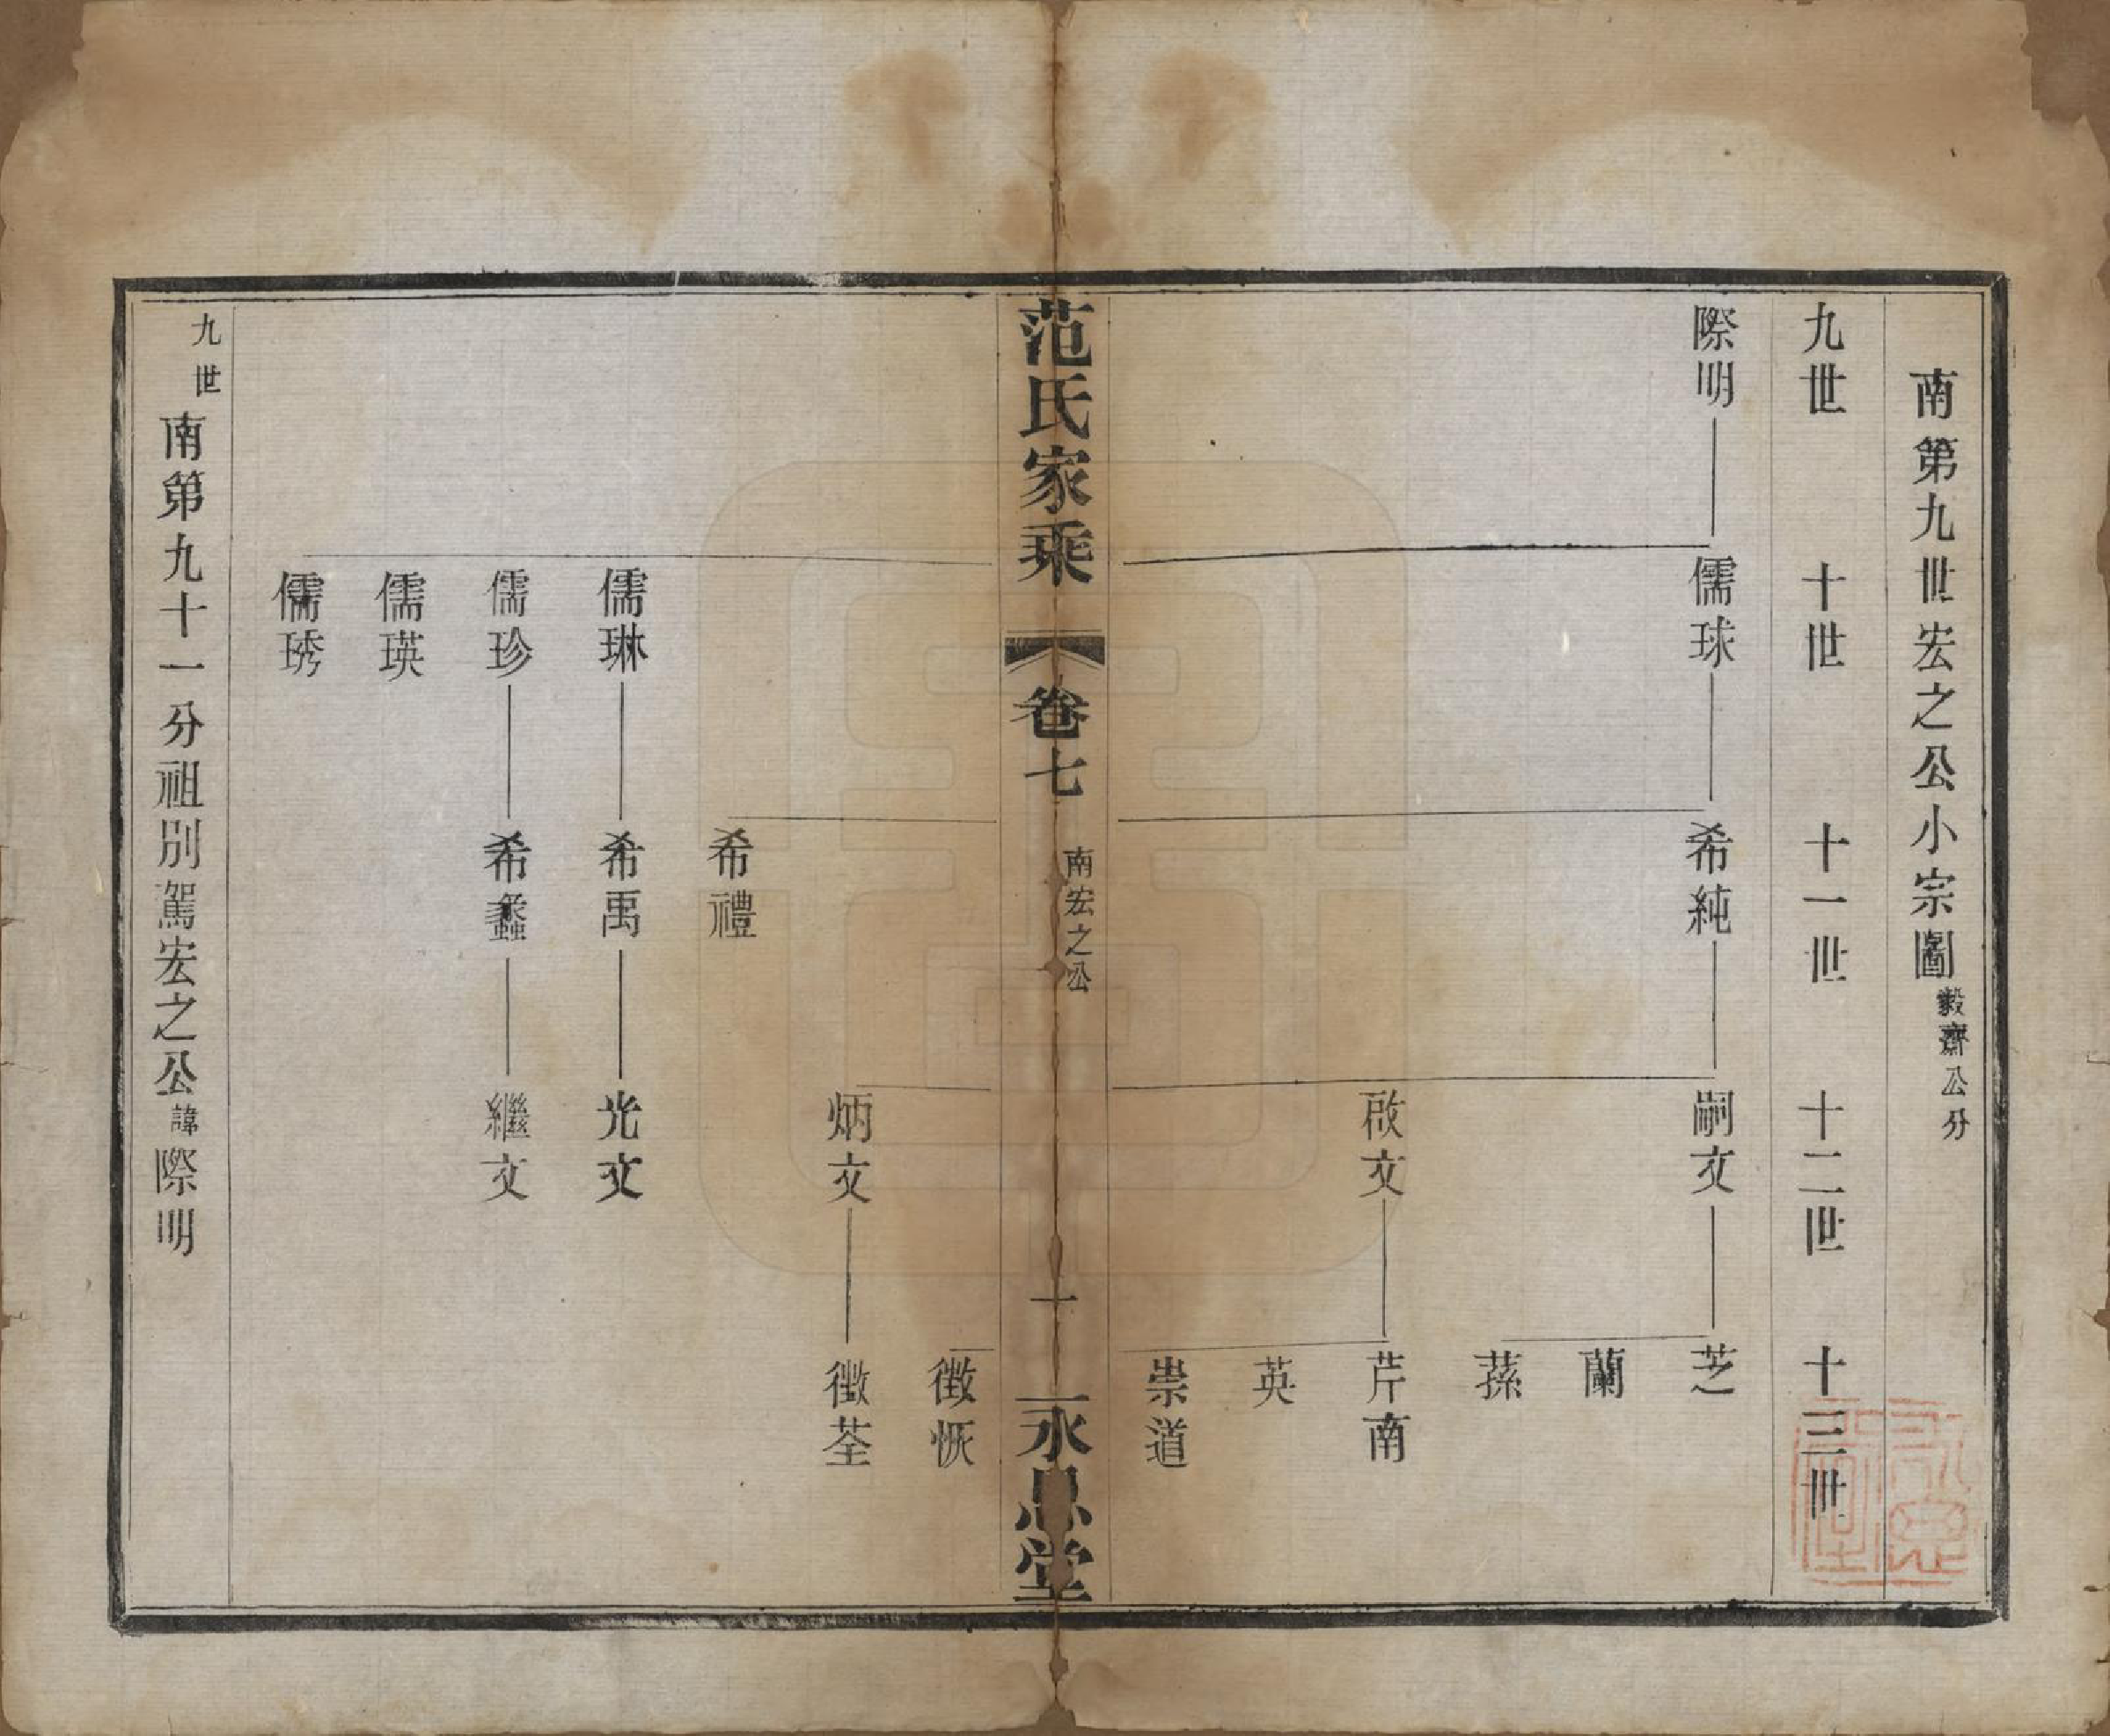 南第九世宏之公小宗圖毅齋公分
九世 十世 十一世 十二世 十三世
際明 儒球 希純 嗣文 芝
蘭
蓀
啟文 芹南
英
崇道
范氏家乘 卷七 南宏之公 一 永思堂
徵恢
炳文 徵荃
希禮
儒琳 希禹 光文
儒珍 希蠡 繼文
儒瑛
儒琇
九世南第九十一分祖別駕宏之公諱際明